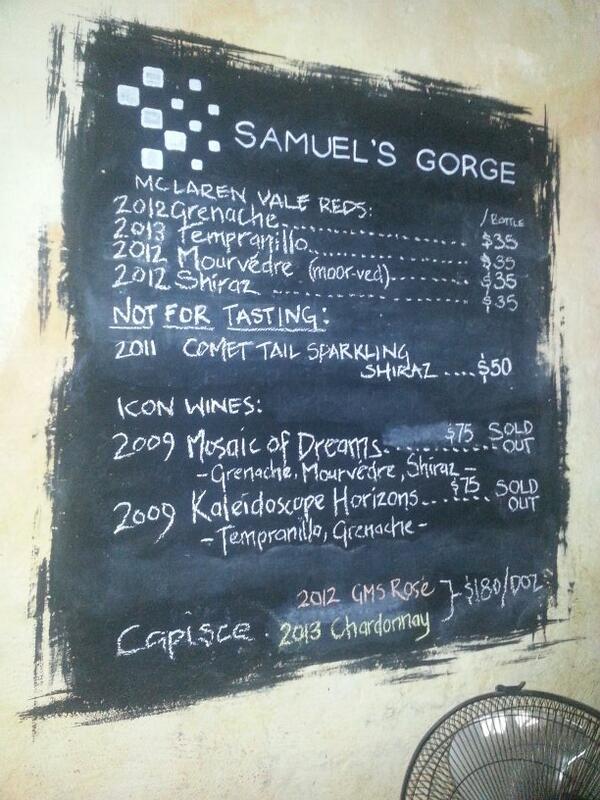 SAMUEL'S GORGE
MCLAREN VALE REDS: /BOTTLE
2012 Grenache........................ $35
2013 Tempranillo..................... $35
2012 Mourvédre (moor-ved)........... $35
2012 Shiraz ......................... $35
NOT FOR TASTING:
2011 COMET TAIL SPARKLING
SHIRAZ ....$50
ICON WINES:
2009 Mosaic of Dreams............ $75 SOLD OUT
-Grenache, Mourvédre, Shiraz-
2009 Kaleidoscope Horizons....... $75 SOLD OUT
-Tempranillo, Grenache-
2012 GMS Rosé } $180/DOZ
Capisce. 2013 Chardonnay